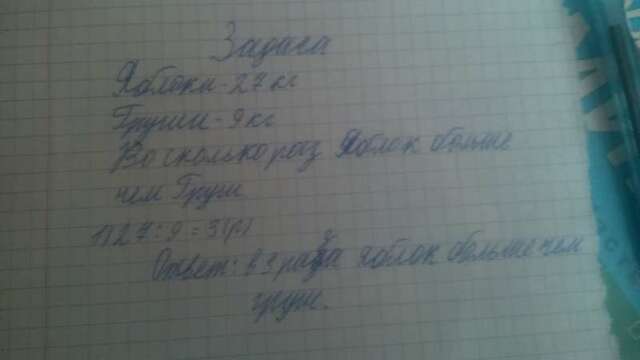 Задача
Яблоки - 27 кг
Груши - 9 кг
Во сколько раз Яблок больше
чем Груш
1) 27 : 9 = 3 (р)
Ответ: в 3 раза яблок больше чем
груш.